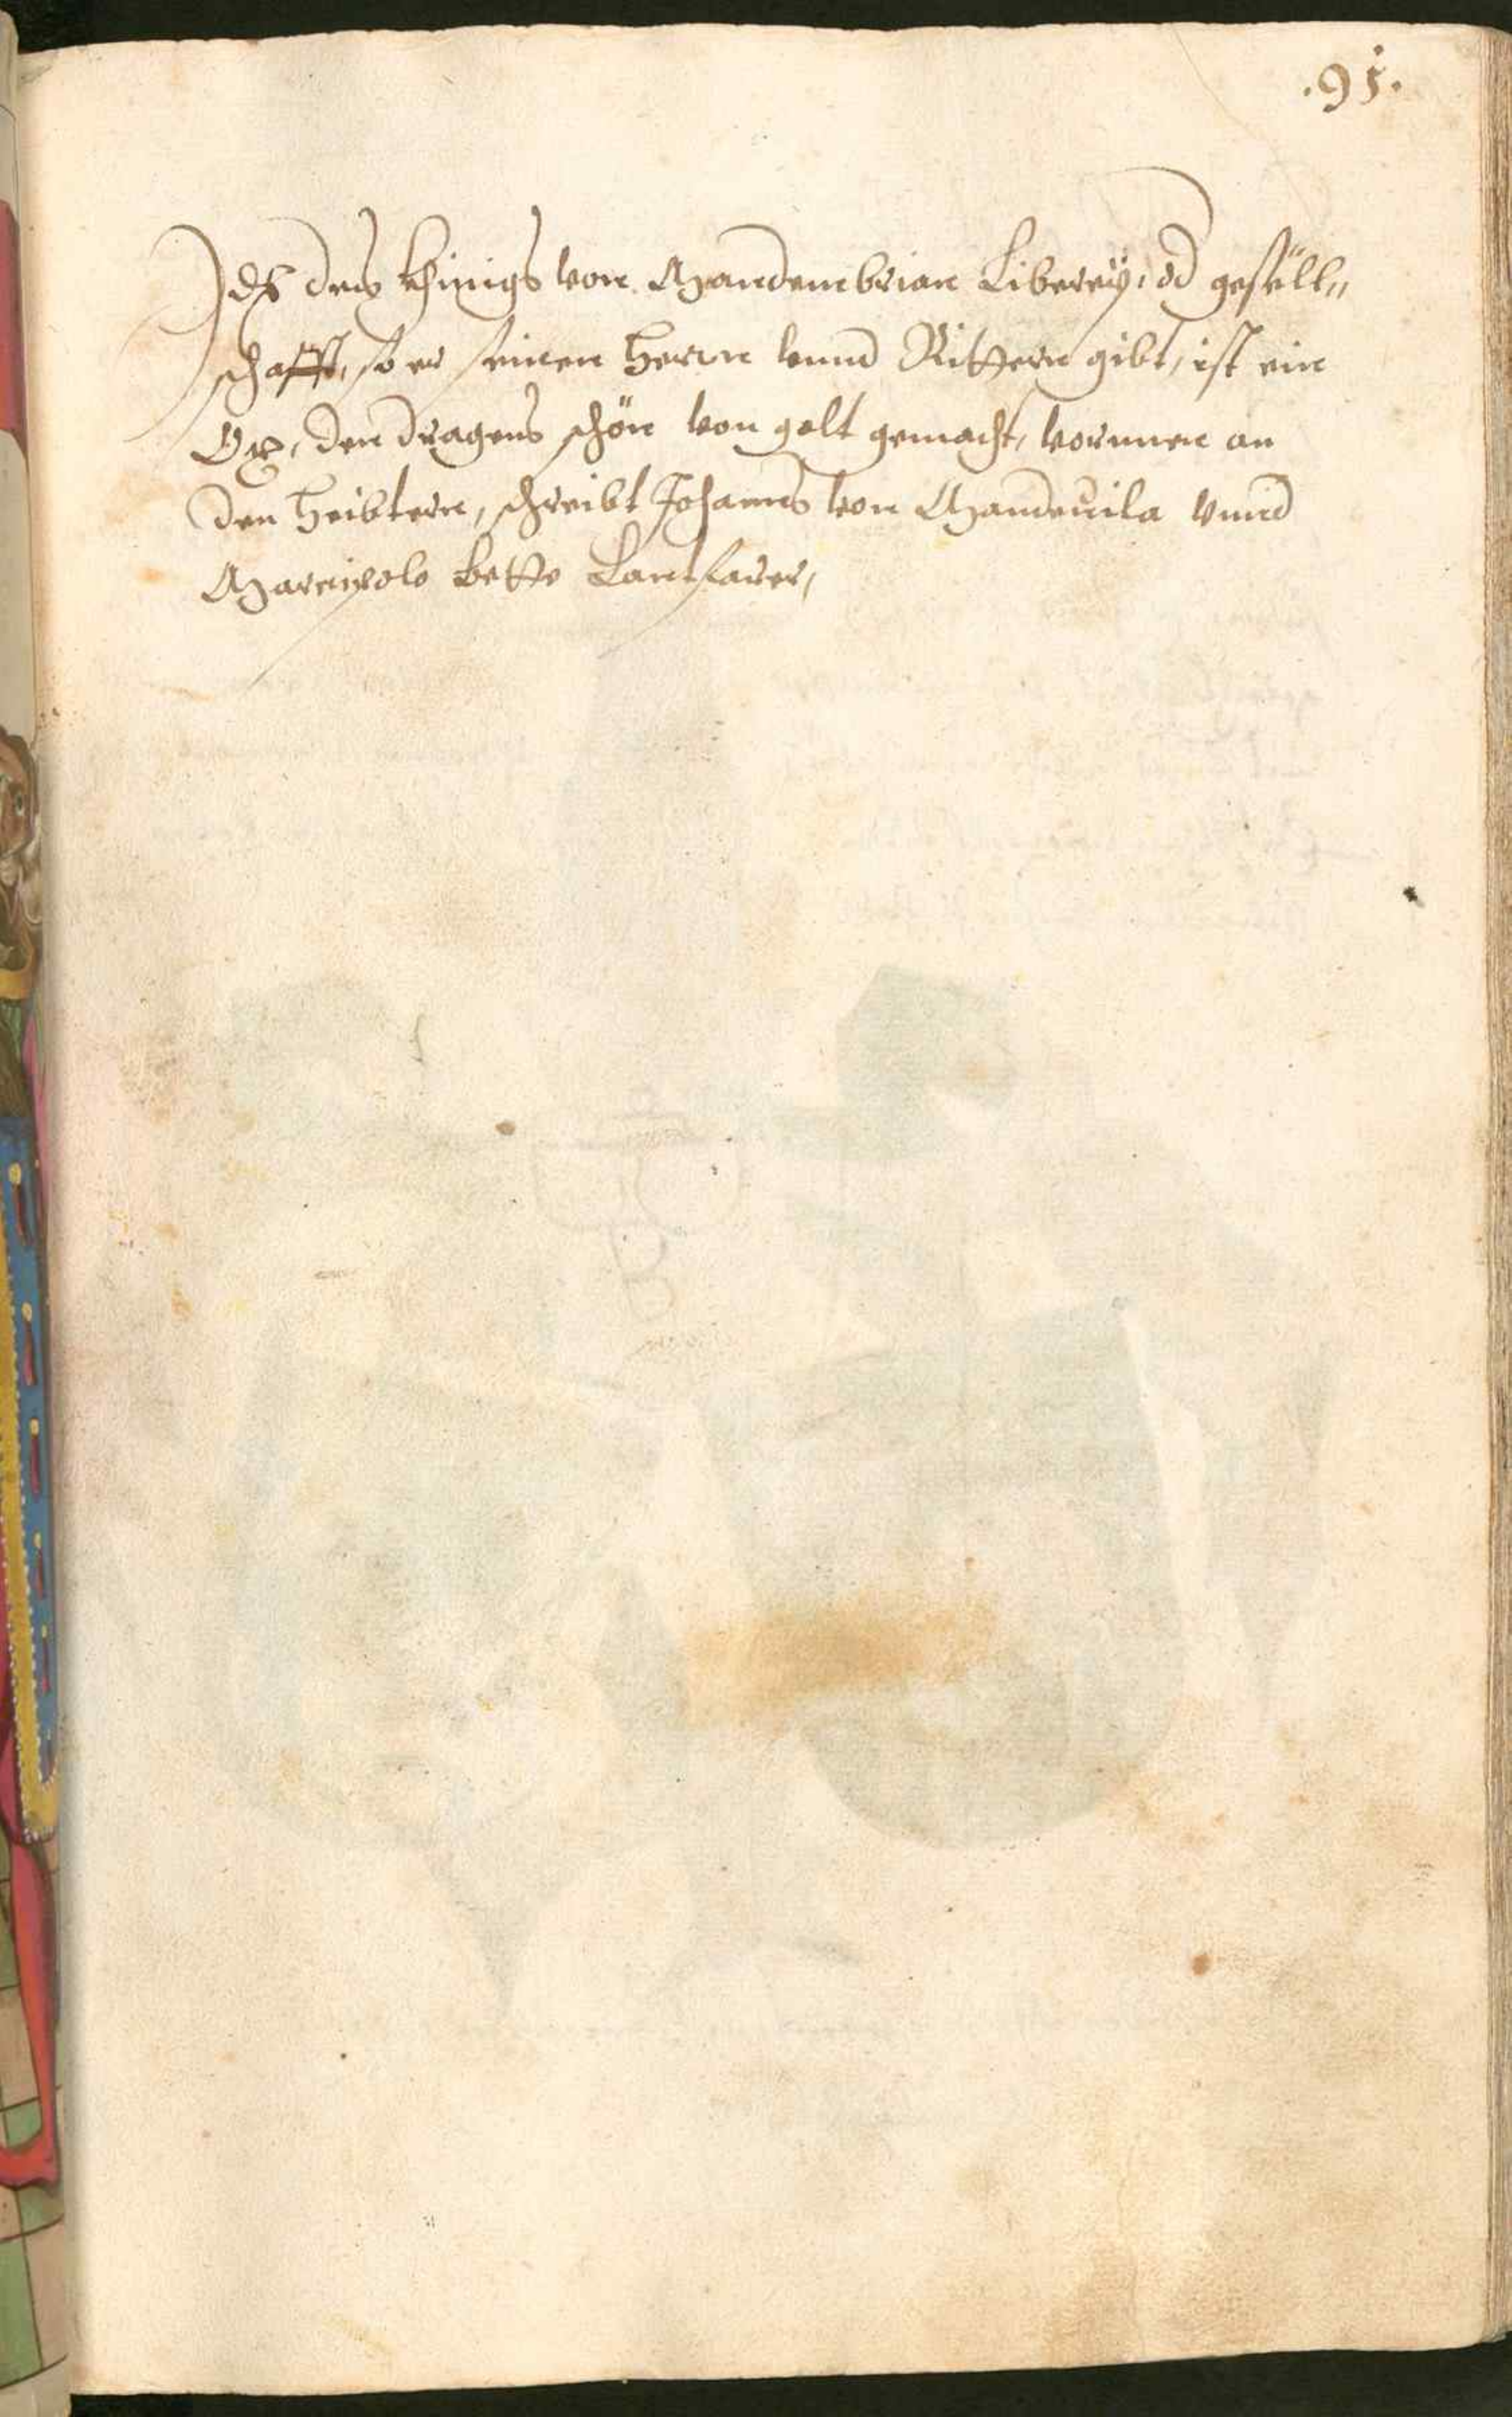 .91.
Ids des Khinigs von Mandenbrian Liberey, od gesell„
schafft, so er seinen Herrn vnnd Rittern gibt, ist ein
Ox, den dragens schön von golt gemacht, vornnen an
den Heibtern, schreibt Johannes von Mandevila vnnd
Marcipolo bette Lantfarer,